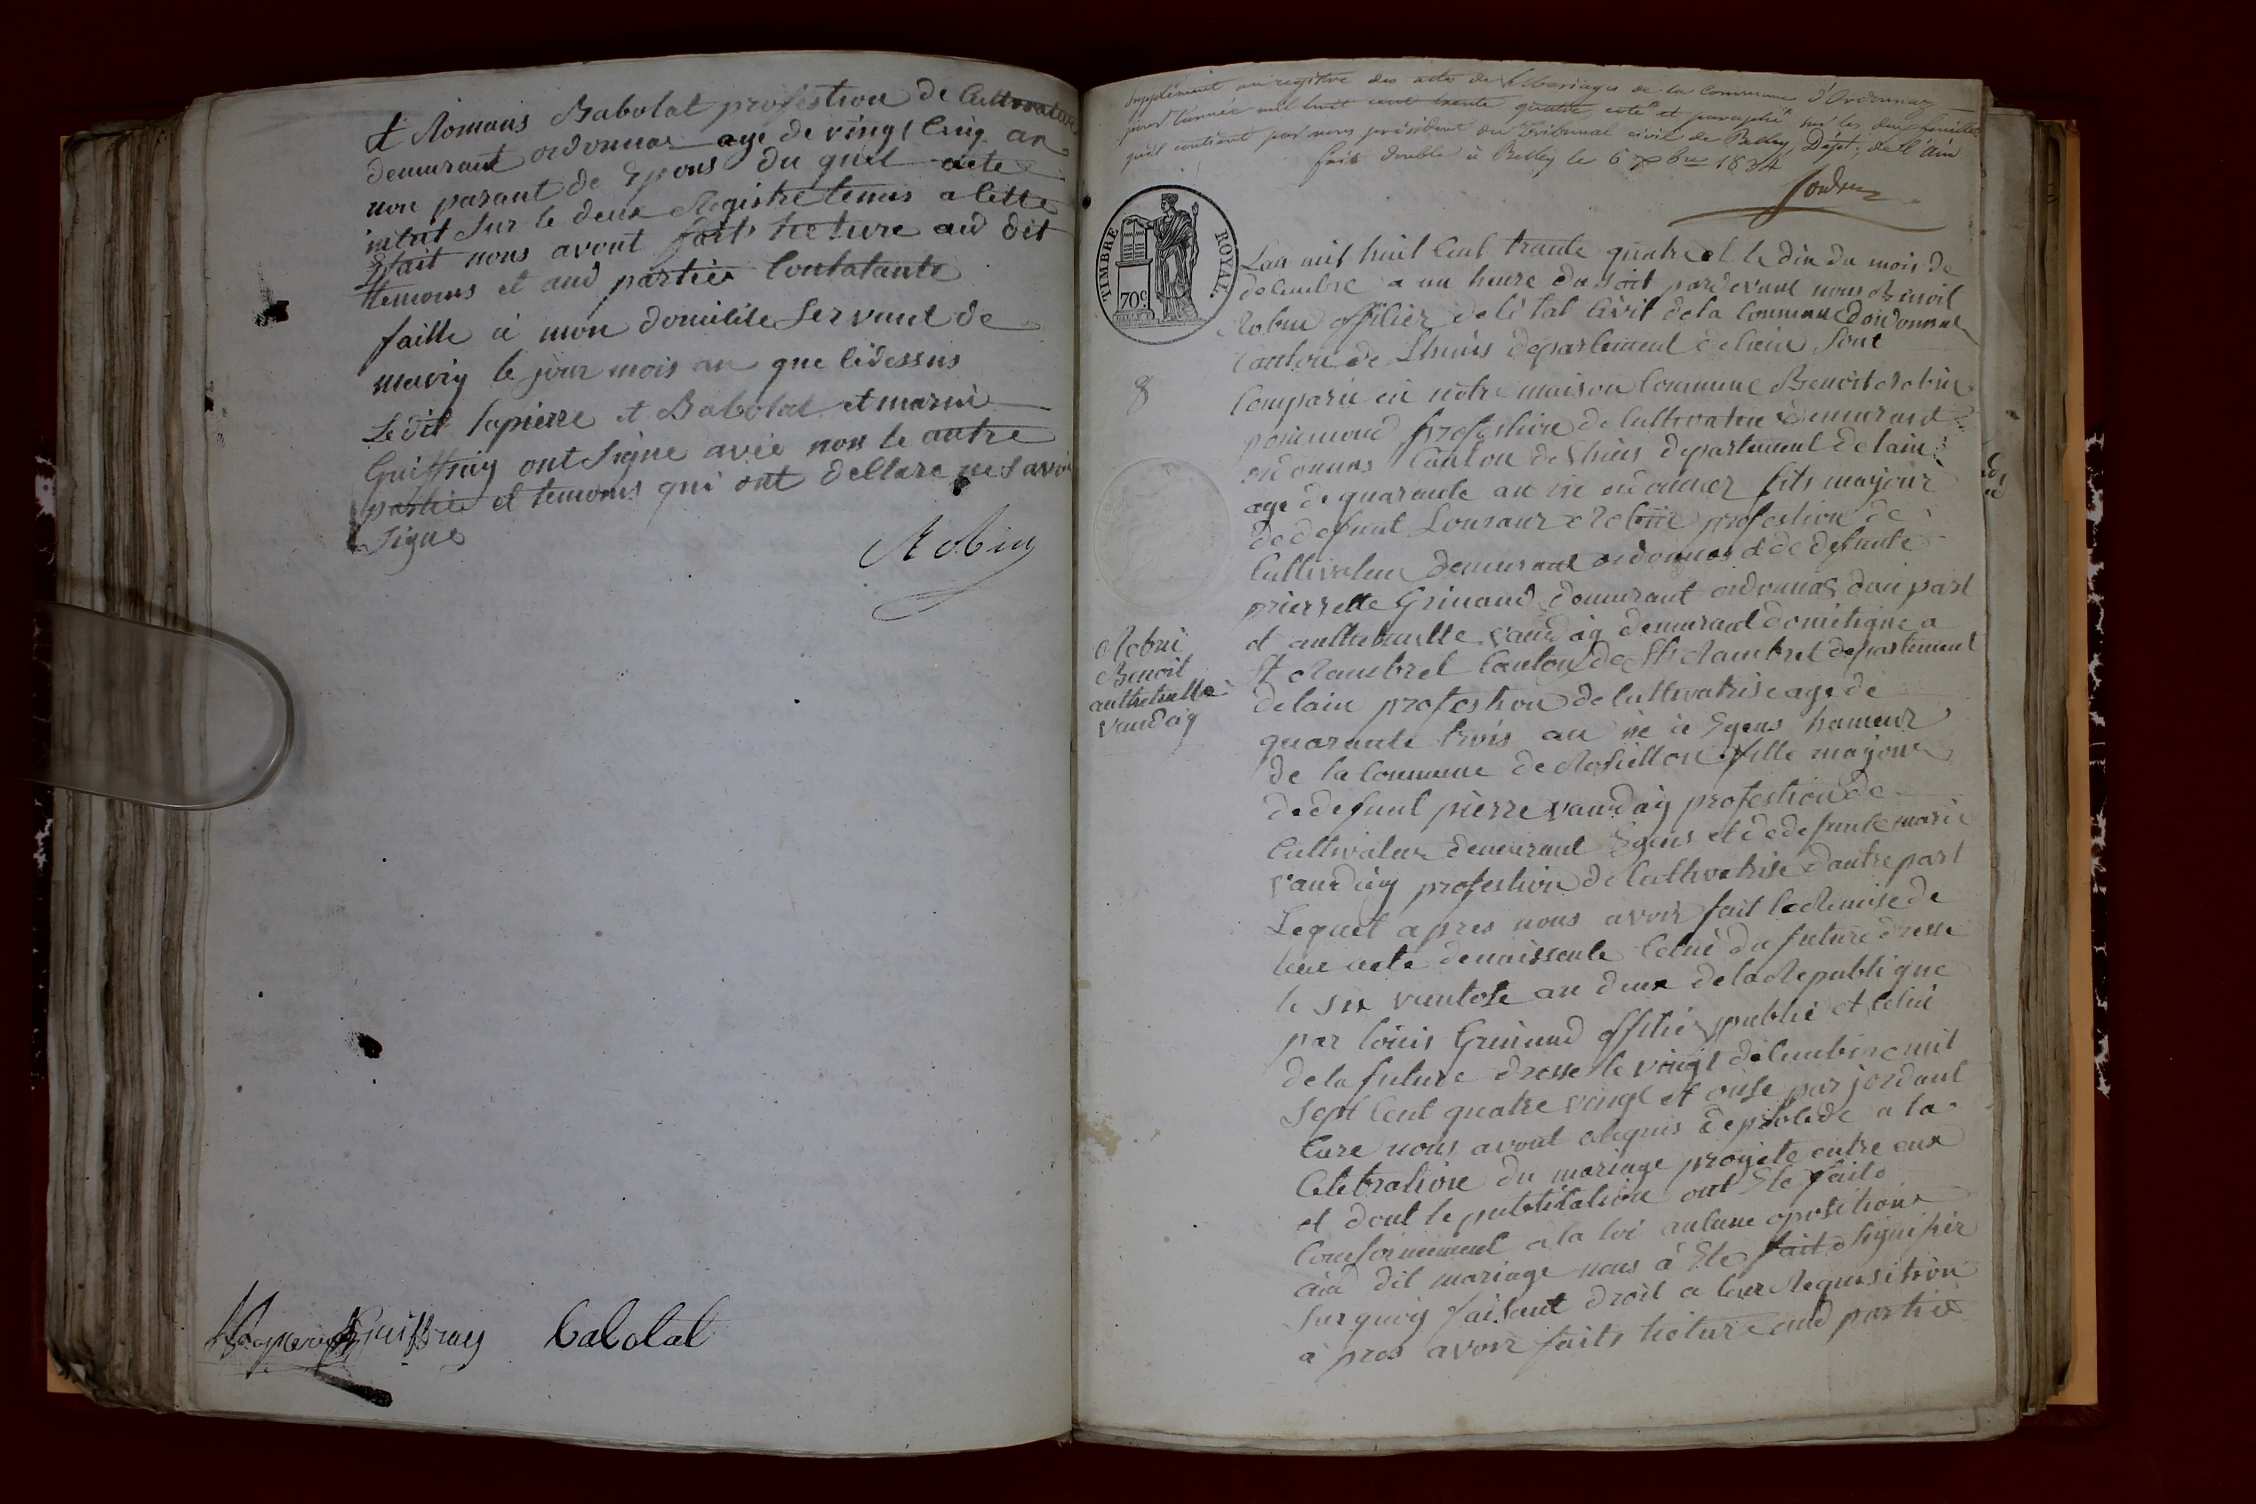 et Romans Babolat profestion de Cultivature
demurant ordonnas age de vingt Cinq an
non parant de Epous du quel acte
intrit Sur le deux Registre tenus a lette
Effait nous avont fait lieture aud dit
ttemoins et aud partiés Contatante
faille a mon domicile Servant de
meriy le jour mois an que lidessus
Ledit lapierre et Babolat et marin
Guiffray ont Signe avec nous le autre
partie et temoins qui ont dellare ne Savoir
Signe
Robin
Guiffray Babolat
Supplément au registre des actes de Mariages de la Commune d'Ordonnaz
pour l'année mil huit cent trente quatre coté et paraphé sur les deux feuilles
qu'il contient par nous président du Tribunal civil de Belley, Dépt. de l'ain
fait double à Belley le 6 Xbre 1834
TIMBRE ROYAL.
70c.
Lan mil huit Cent trante quatre et le dix du mois de
delembre a un heure du soit pardevant nous Benoit
Robin offilier de létat Civil dela Commune dordonnas
Canton de Lhuis departement delain Sont
8
Comparu en nôtre maison Commune Benoit Robin
profestion de Cultivateur demurant
ordonnas Canton de Lhuis departement delain
age de quarante an né ordonnaz fits mayour
dedefunt Louranz Robin profestion de
Cultivateur demurant ordonnas et de defunte
pierrette Grinand demurant ordonnas dun part
et anthelmette vauday demurant domitigne a
Robin
Benoit
anthelmette
vauday
St Rambret Canton de St Rambret departement
delain profestion de Cultivatrise age de
quarante trois an né a Egens hameux
de la Commune de Rosiellon fille mayoure
dedefunt pierre vauday profestion de
Cultivateur demurant Egens et dedefunte marie
vauday profestion de Cultivatrise dautre part
Lequel apres nous avoir fait la Remise de
leur acte denaissente Celui du future dresse
le six vantose an deux dela Republique
par louis Grinand offilié publié et Celui
dela future dresse le vingt delembre mil
Sept Cent quatre vingt et onse par jordant
Cure nous avont Requis deprolede a la
Celebration du mariage proyete entre eux
et dont le publilation ont Ete fait
Conformement a la loi aulune oposition
aud dit mariage nous a Ete fait signifier
Surquoy faisant droit a leur Requisition
a pres avoir faits lieture aud partiés